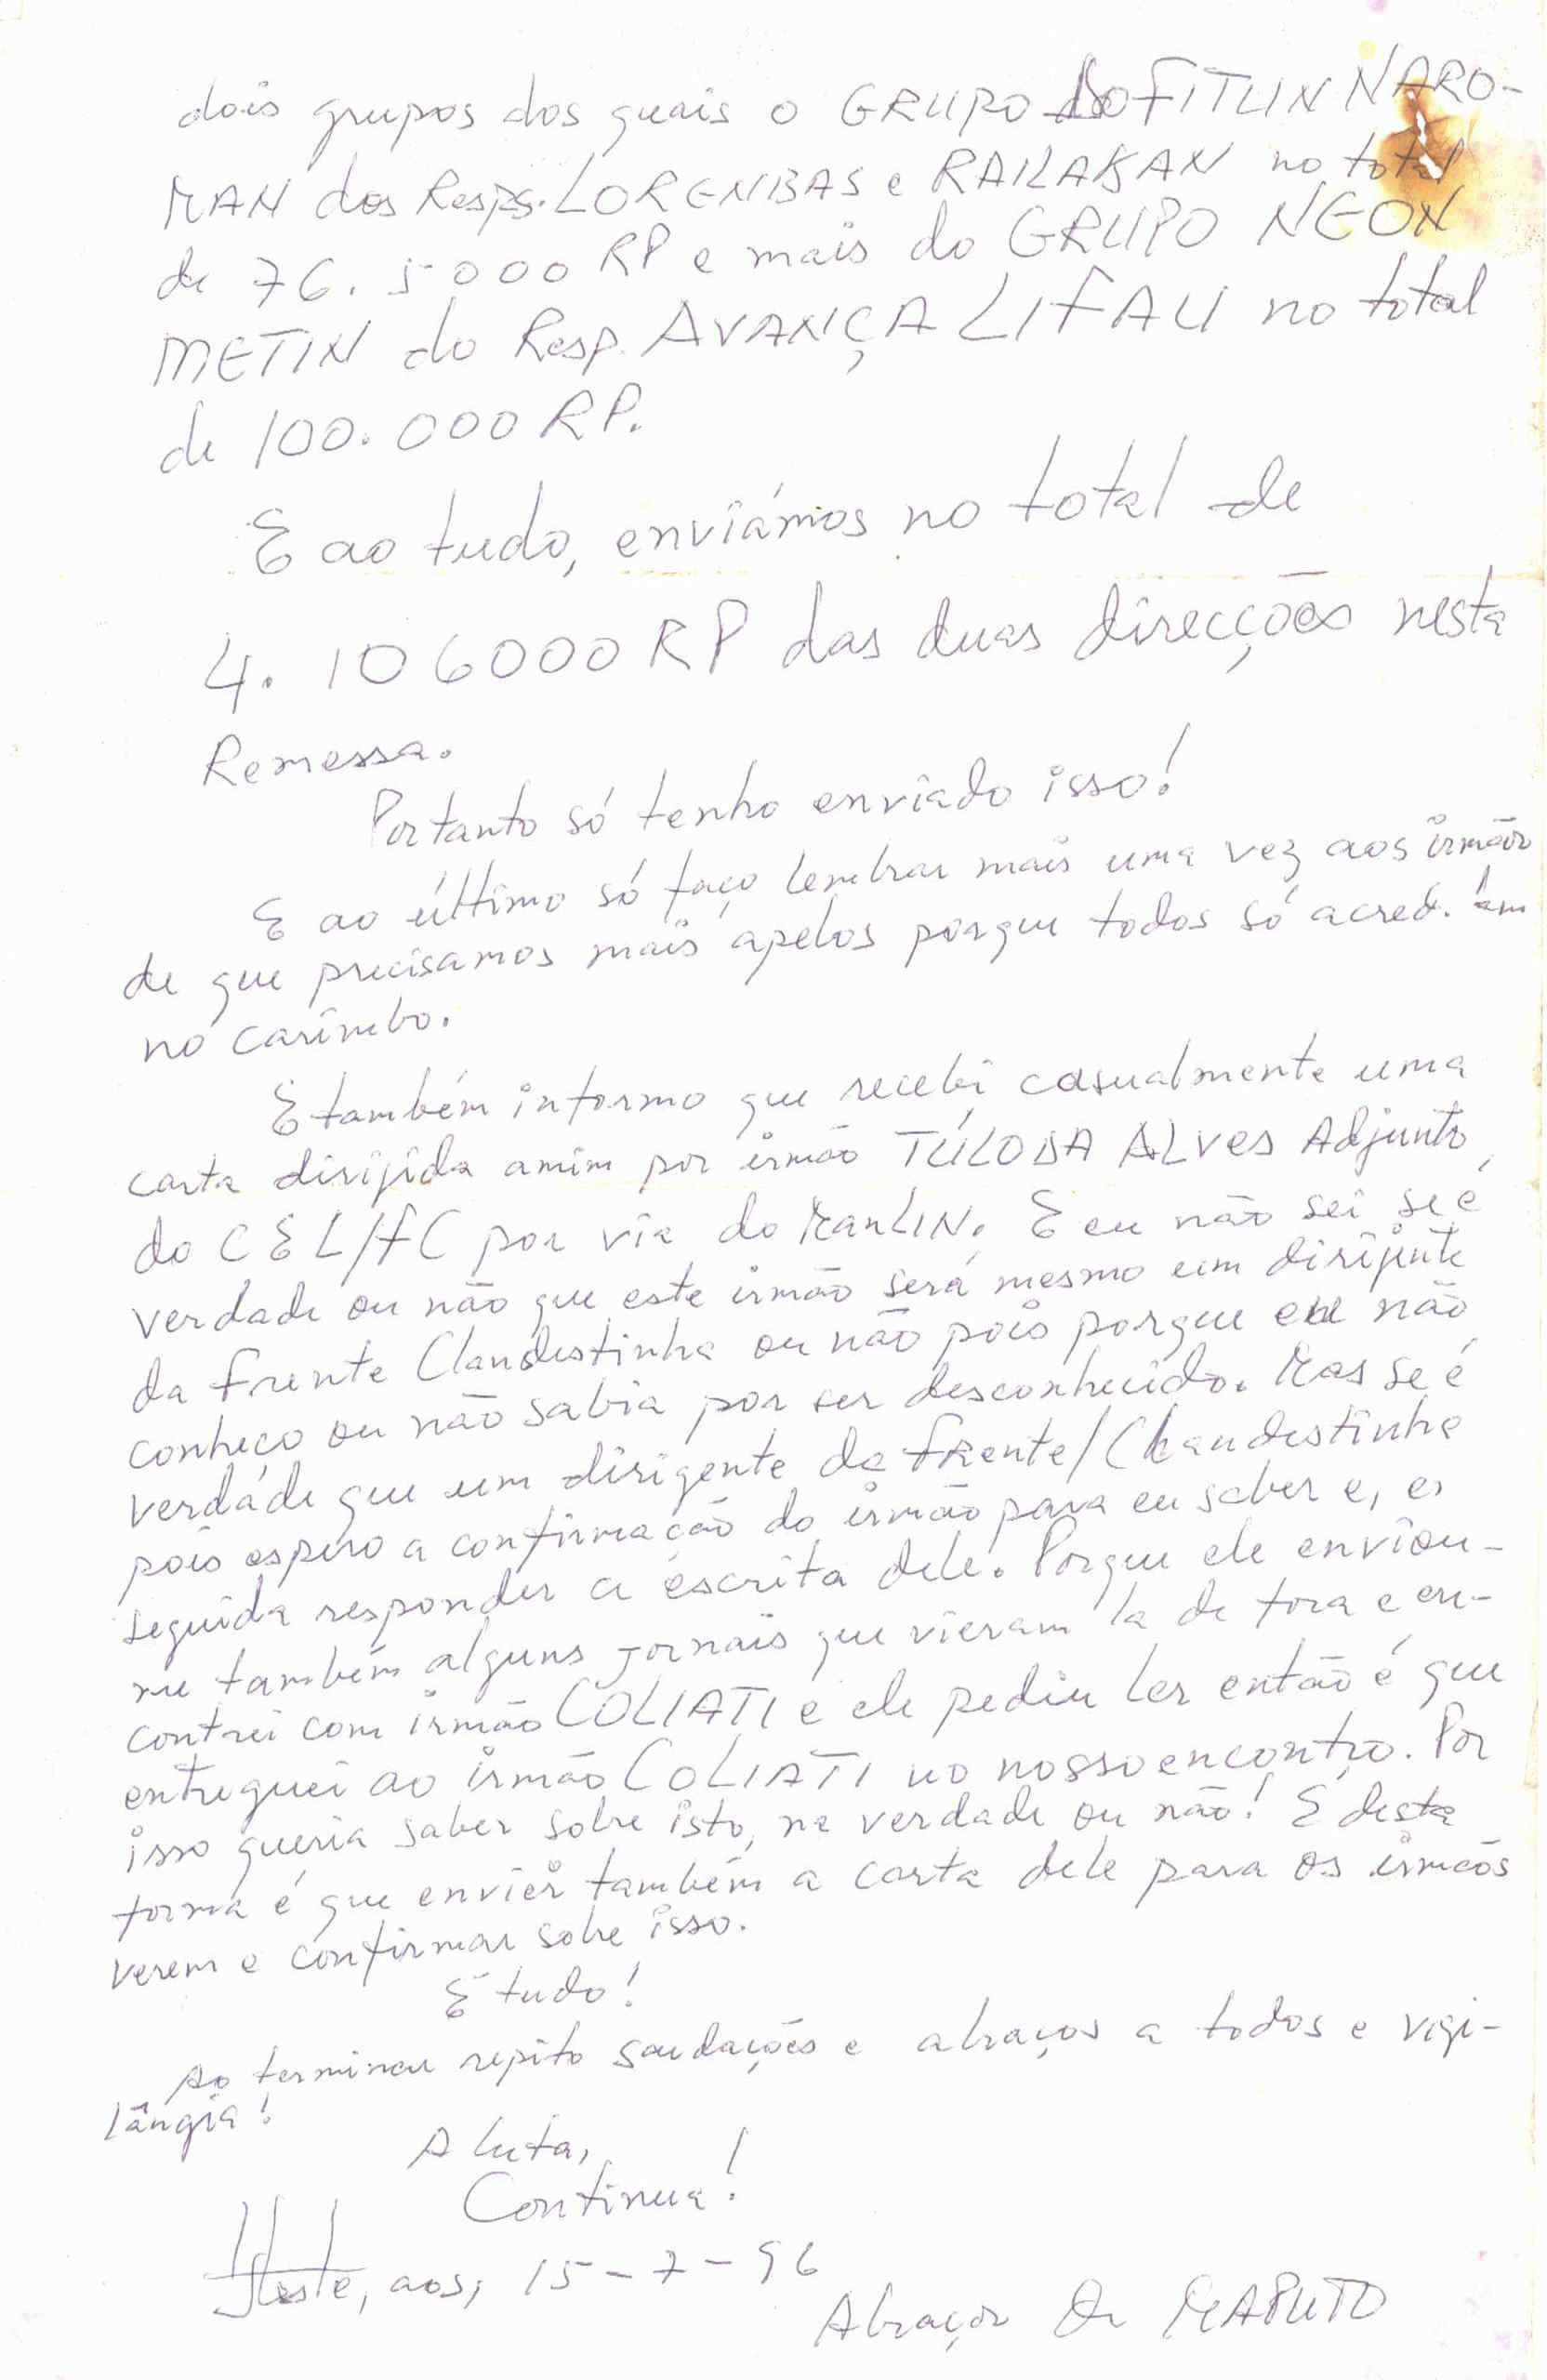 dois grupos dos quais o GRUPO DO FITUN NARO-
MAN dos Resps. LORENBAS e RAILAKAN no total
de 76.5000 RP e mais do GRUPO NEON
METIN do Resp. AVANÇA LIFAU no total
de 100.000 RP.
E ao tudo, enviámos no total de
4.106000 RP das duas direcções nesta
Remessa.
Portanto só tenho enviado isso!
E ao último só faço lembrar mais uma vez aos irmãos
de que precisamos mais apelos porque todos só acreditam
no carimbo.
E também informo que recebi casualmente uma
carta dirijida amim por irmão TÚLODA ALVES Adjunto
do CEL/FC por via do MauLIN. E eu não sei se é
verdade ou não que este irmão será mesmo um dirijente
da Frente Clandestinha ou não pois porque eu não
conheço ou não sabia por ser desconhecido. Mas se é
verdade que um dirigente da Frente/Clandestinha
pois espero a confirmação do irmão para eu saber e, em
seguida responder a escrita dele. Porque ele enviou-
me também alguns jornais que vieram la de fora e en-
contrei com irmão COLIATI e ele pediu ler então é que
entreguei ao irmão COLIATI no nosso encontro. Por
isso queria saber sobre isto, na verdade ou não! E desta
forma é que enviei também a carta dele para os irmãos
verem e confirmar sobre isso.
É tudo!
Ao terminar repito saudações e abraços a todos e vigi-
lângia!
A luta,
Continua!
Leste, aos, 15-7-96
Abraços De MAPUTO